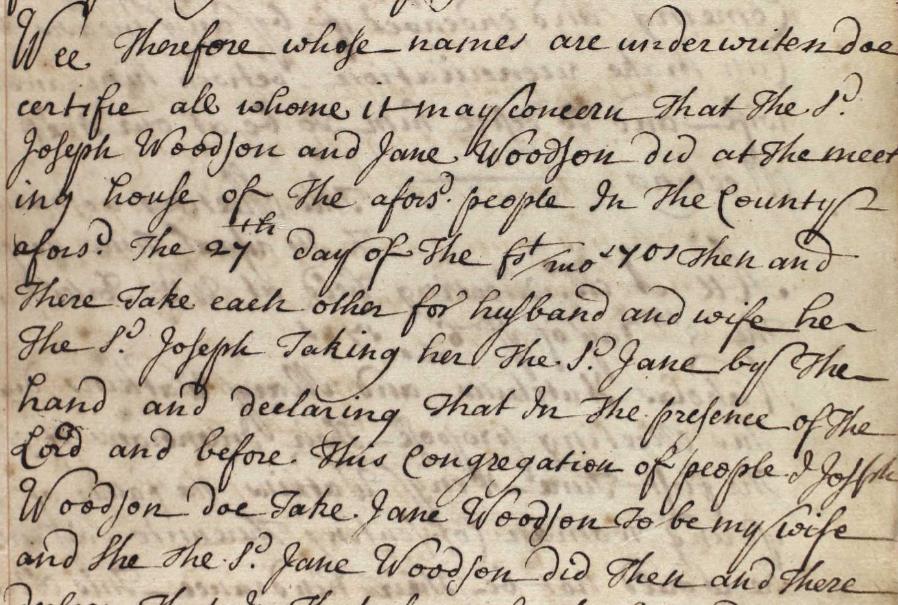 Wee Therefore whose names are underwriten doe
certifie all whome it may concern That the Sd.
Joseph Woodson and Jane Woodson did at the meet
ing house of the aforsd. people In the County
aforsd. The 27th day of the fst/mo 1701 Then and
There Take each other for husband and wife he
The Sd. Joseph Taking her The Sd. Jane by The
hand and declaring That In the presence of The
Lord and before This Congregation of people I Joseph
Woodson doe Take Jane Woodson To be my wife
and She the Sd. Jane Woodson did Then and There